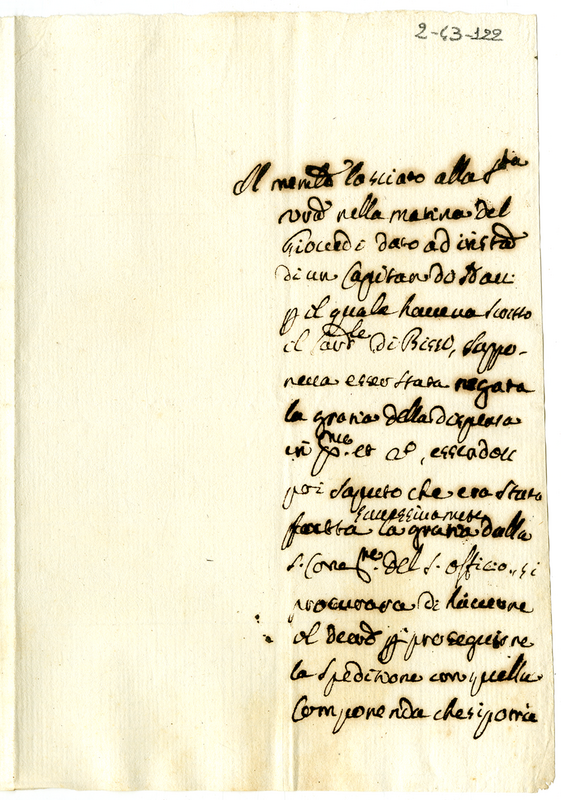 2-43-122
Il mem.le lasciato alla S.ta
v.ra nella matina del
Giovedì dato ad inst.a
di un Capitan do
p il quale haveva scritto
il Card.le di Bissi, suppo-
neva esser stata negata
la gratia della dispensa
in p.mo et 2.o, essendosi
poi saputo che era stata
successivamente
fatta la gratia dalla
S. Cong.ne del S. Officio, si
procurara di haverne
il decr.o p proseguirne
la speditione con quella
Componenda che si potria